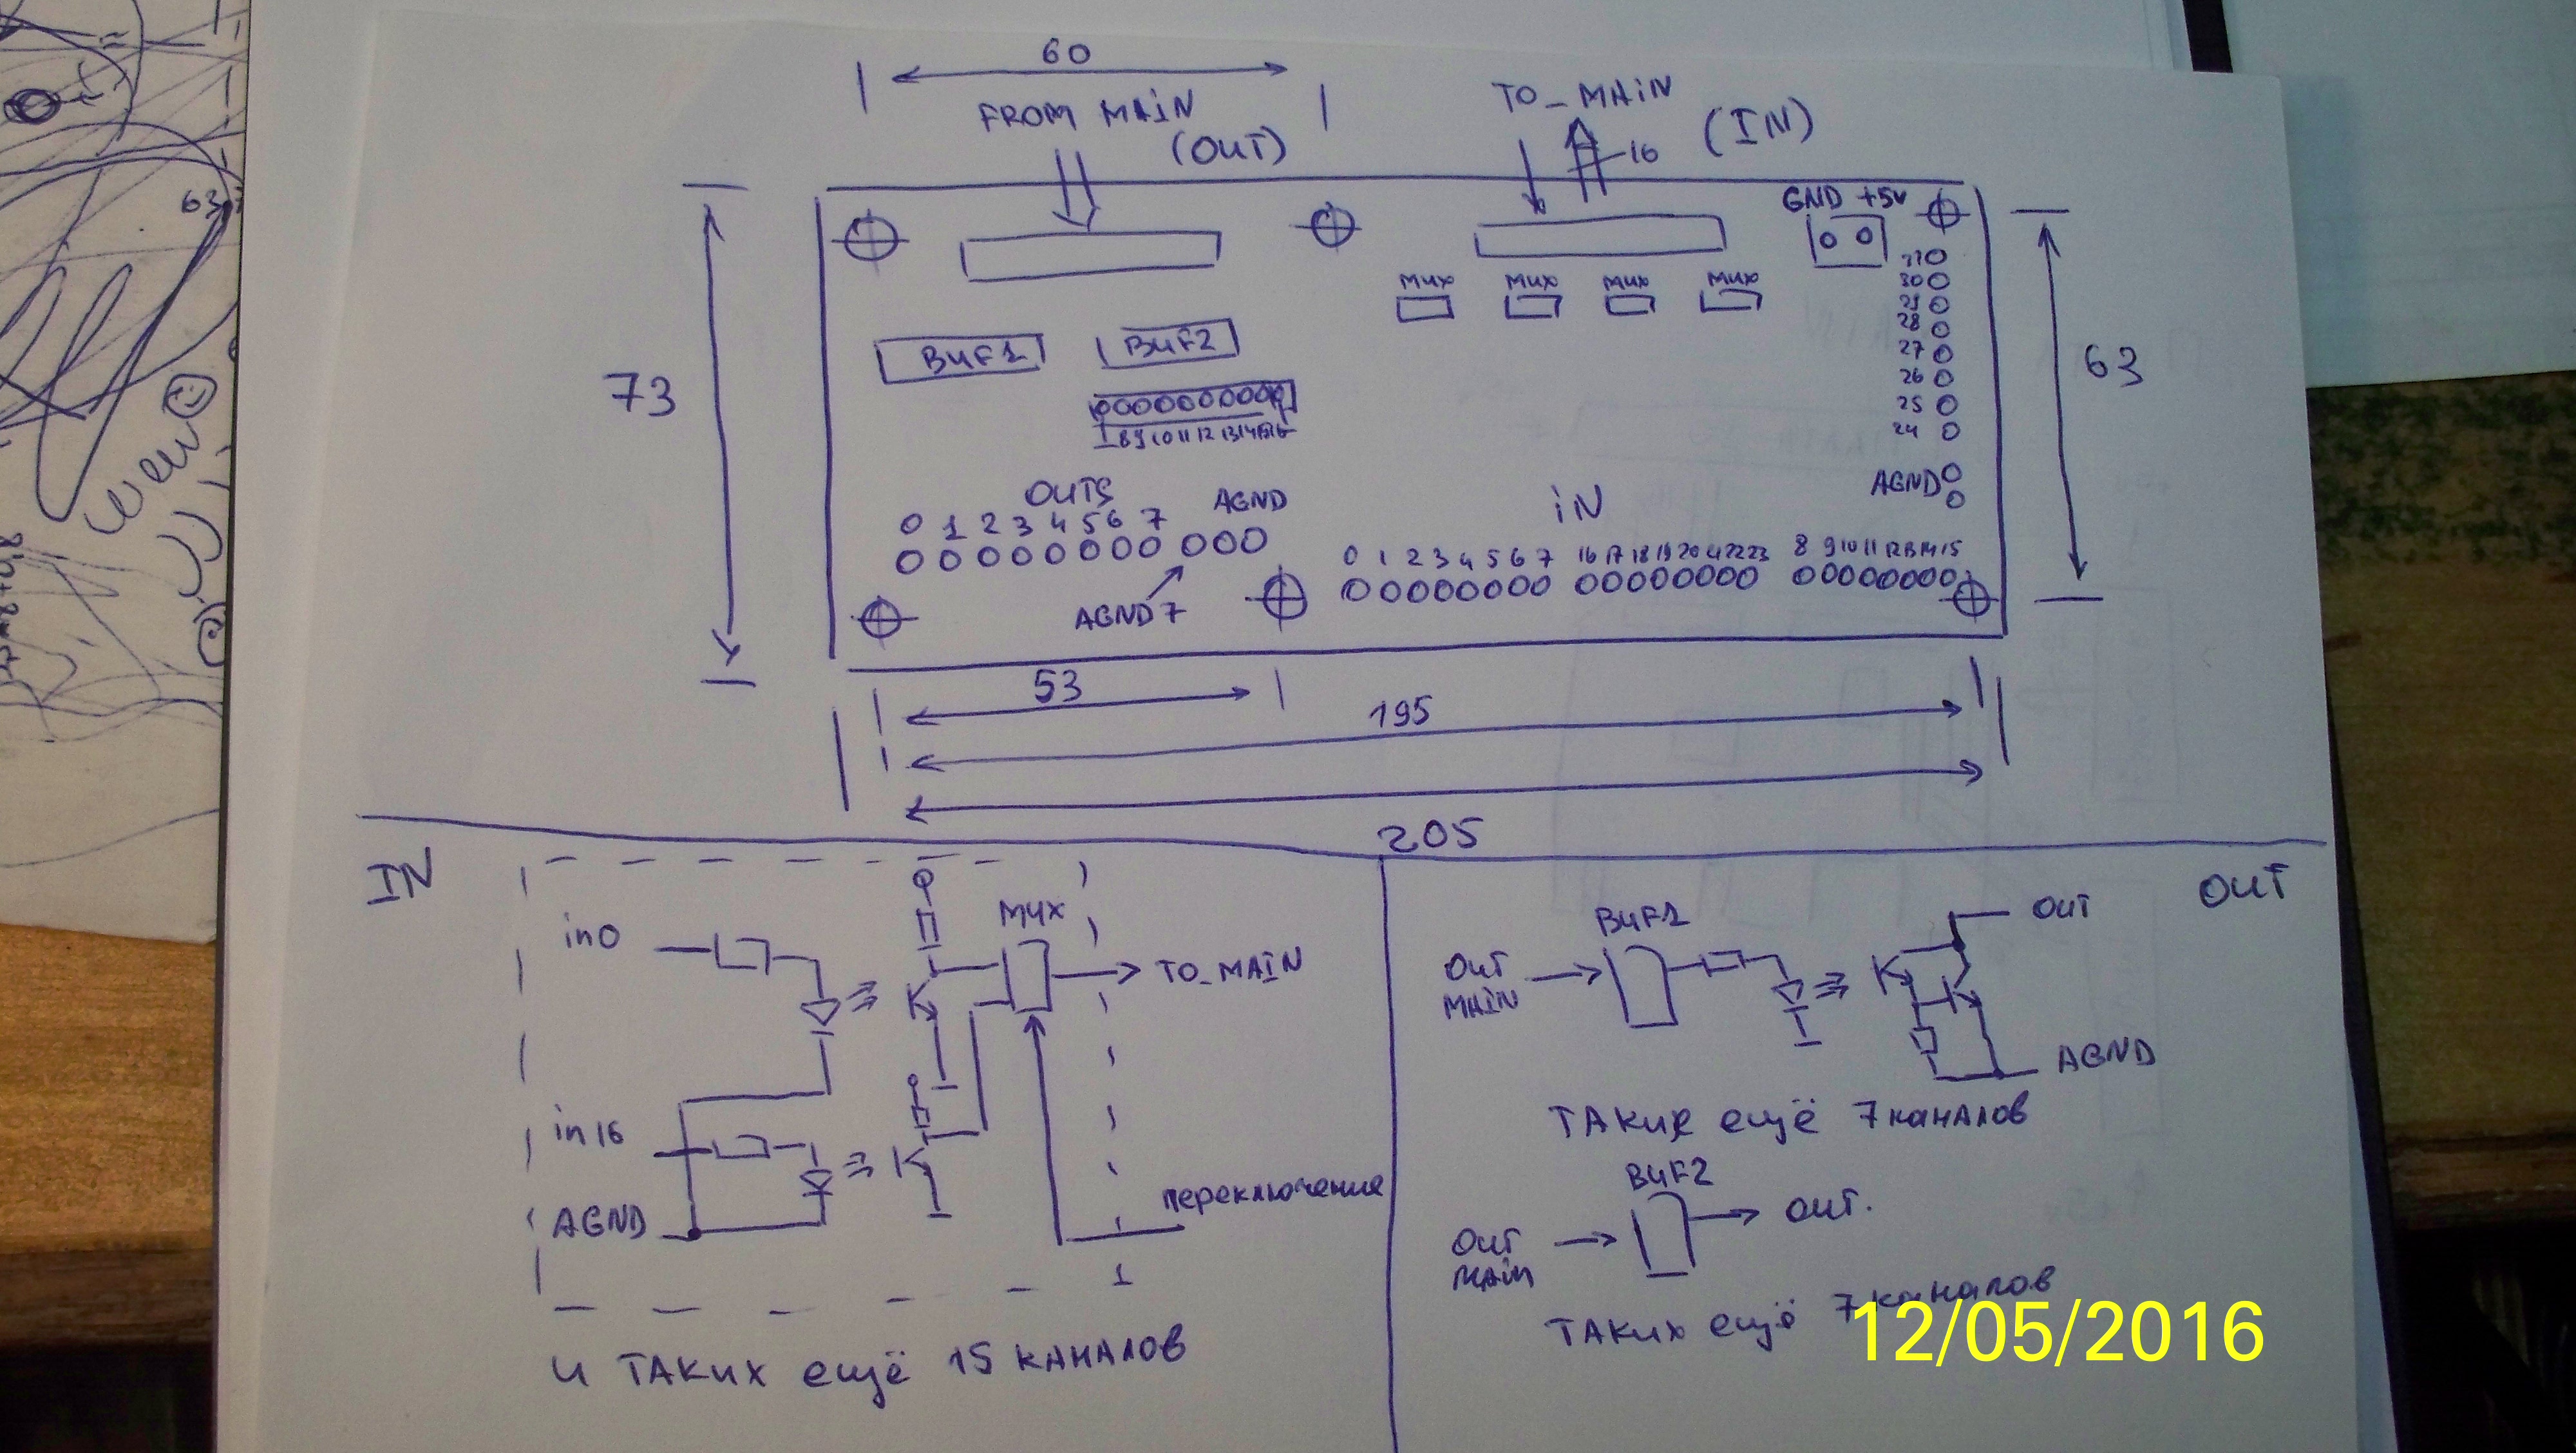 60
FROM MAIN
(OUT)
TO_MAIN
(IN)
16
63
GND +5v
MUX MUX MUX MUX
30
29
28
27
26
25
24
AGND
BUF1 BUF2
73
63
8 9 10 11 12 13 14 15
OUTS AGND
0 1 2 3 4 5 6 7
IN
0 1 2 3 4 5 6 7 16 17 18 19 20 21 22 23 8 9 10 11 12 13 14 15
AGND7
53
195
205
IN
in0
MUX
TO_MAIN
in16
AGND
переключение
1
и таких ещё 15 каналов
OUT
BUF1
OUT
MAIN
OUT
AGND
таких ещё 7 каналов
BUF2
OUT
MAIN
OUT.
таких ещё 7 каналов
12/05/2016